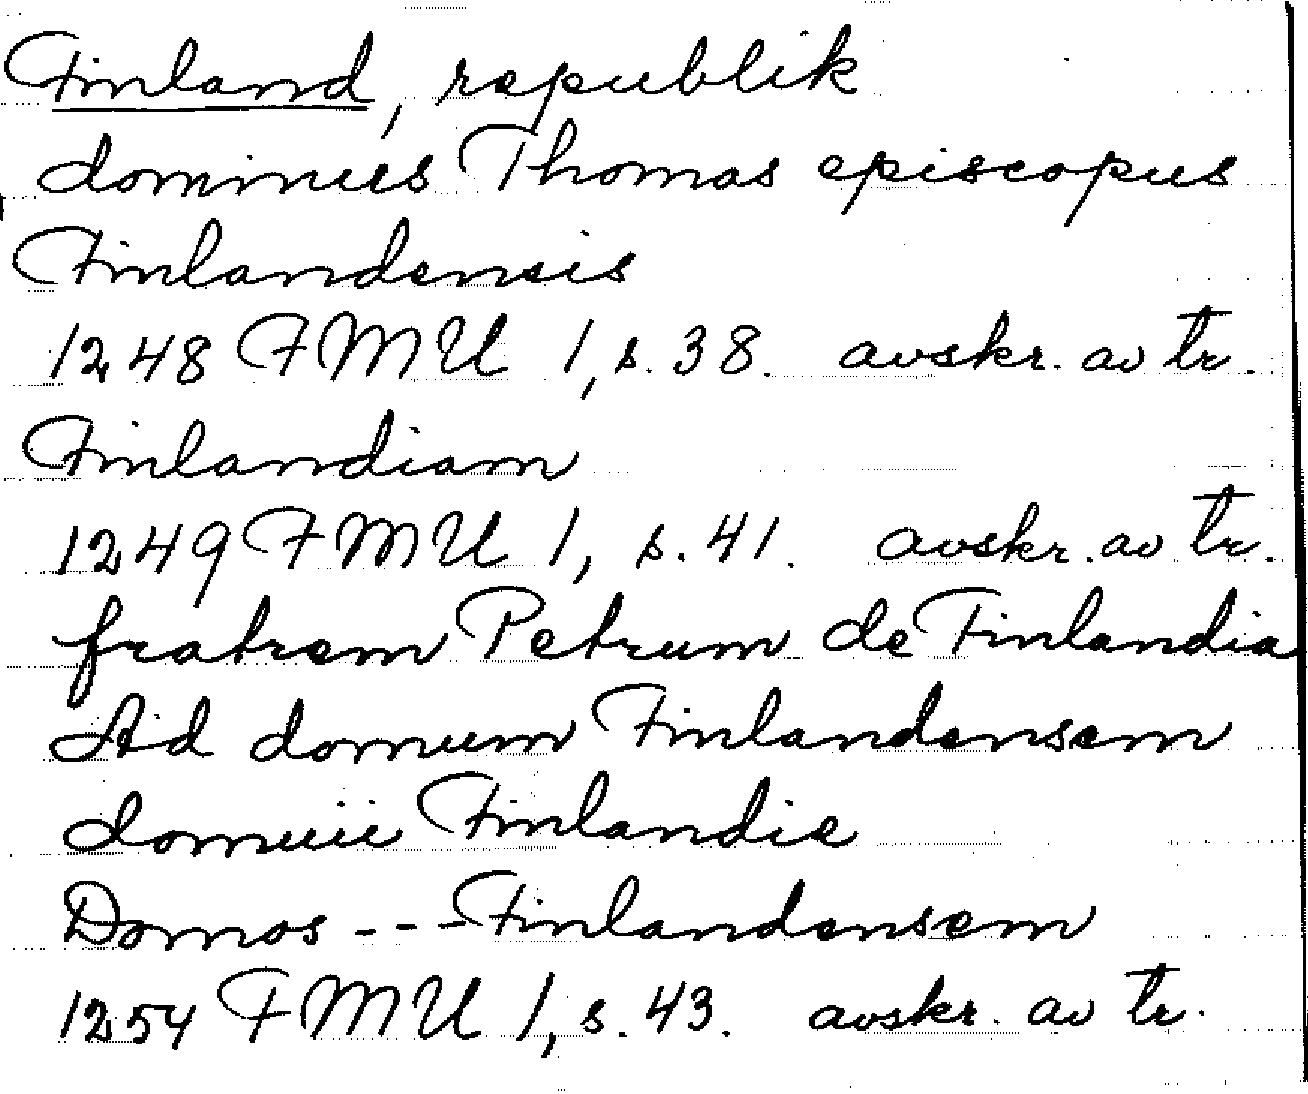 Finland, republik
dominus Thomas episcopus
Finlandensis
1248 FMU 1, s. 38. avskr. av tr.
Finlandiam
1249 FMU 1, s. 41. avskr. av tr.
fratrem Petrum de Finlandia
Ad domum Finlandensem
domui Finlandie
Domos --- Finlandensem
1254 FMU 1, s. 43. avskr. av tr.